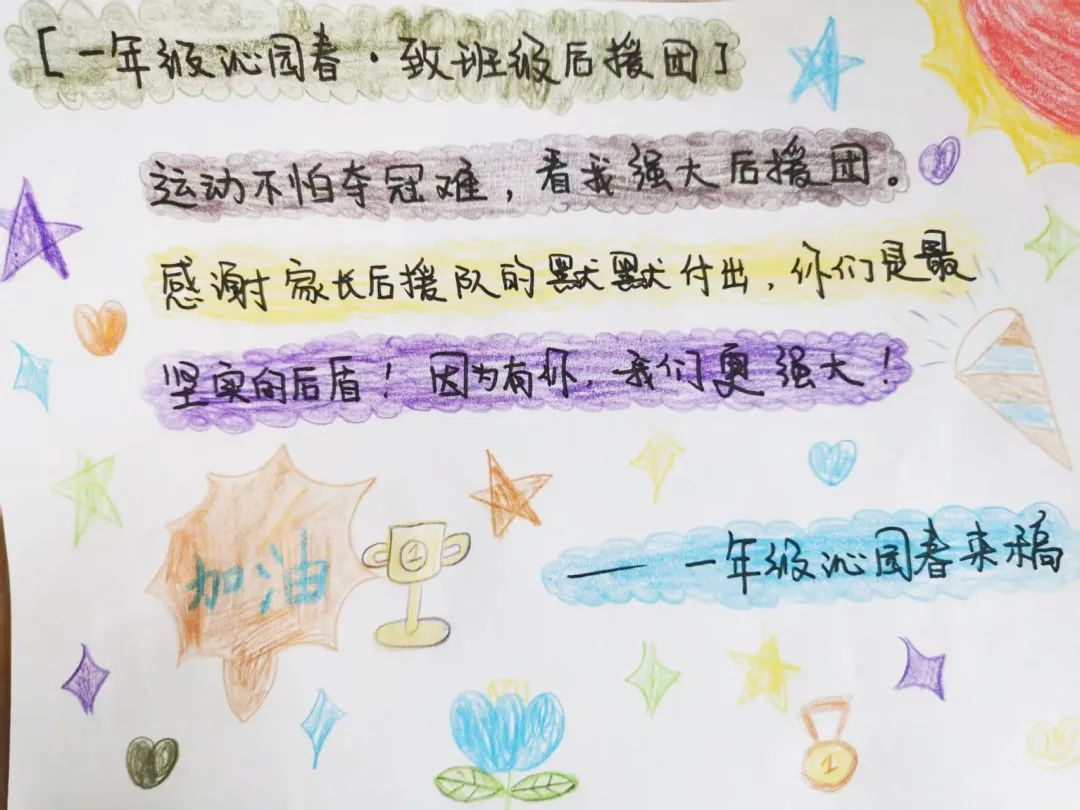 [一年级沁园春·致班级后援团]
运动不怕夺冠难，看我强大后援团。
感谢家长后援队的默默付出，你们是最
坚实的后盾！因为有你，我们更强大！
加油
1
——一年级沁园春来稿
1